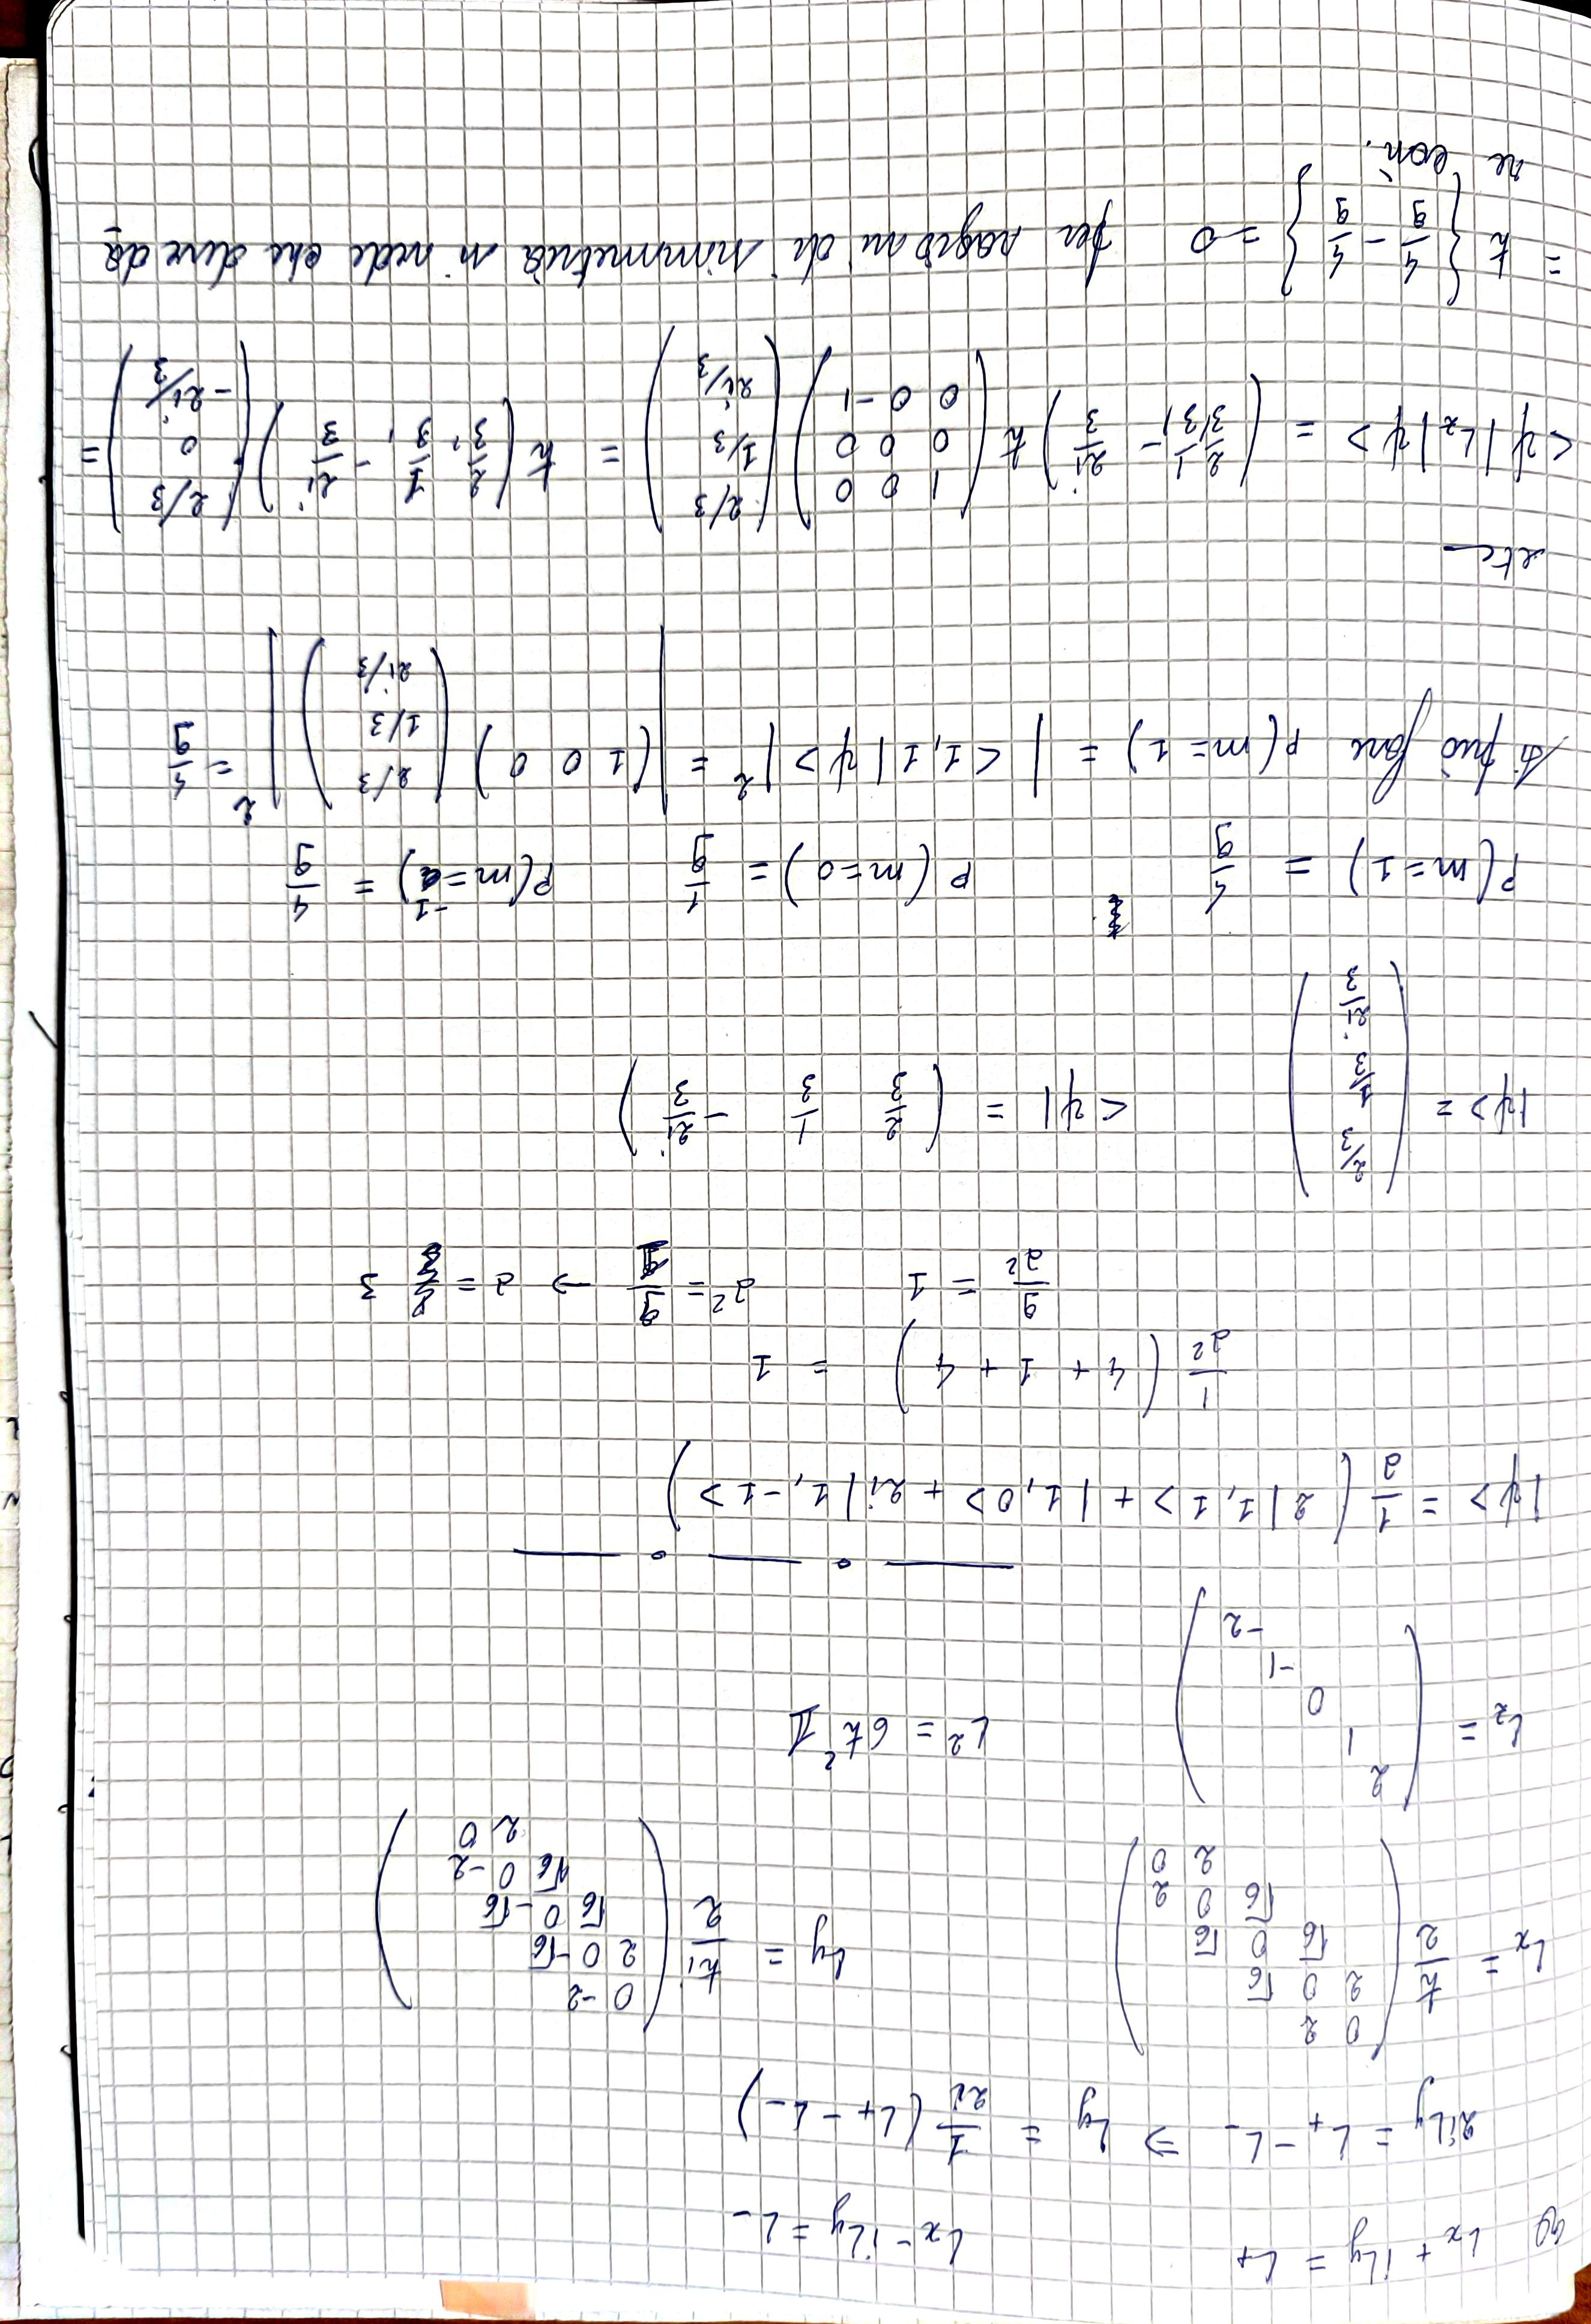 Lx + iLy = L+ Lx - iLy = L-
2iLy = L+ - L- ⇒ Ly = 1/2i (L+ - L-)
Lx = ħ/2 ( 0 2
2 0 √6
√6 0 √6
√6 0 2
2 0 ) Ly = ħi/2 ( 0 -2
2 0 -√6
√6 0 -√6
√6 0 -2
2 0 )
Lz = ( 2
1
0
-1
-2 ) L² = 6ħ² 𝟙
|ψ> = 1/a ( 2|1,1> + |1,0> + 2i|1,-1> )
1/a² ( 4 + 1 + 4 ) = 1
9/a² = 1 a² = 9 → a = 3
|ψ> = ( 2/3 1/3 2i/3 ) <ψ| = ( 2/3 1/3 -2i/3 )
P(m=1) = 4/9 P(m=0) = 1/9 P(m=-1) = 4/9
Si può fare P(m=1) = |<1,1|ψ>|² = | (1 0 0) ( 2/3
1/3
2i/3 ) |² = 4/9
etc
<ψ|Lz|ψ> = ( 2/3, 1/3, -2i/3 ) ħ ( 1 0 0
0 0 0
0 0 -1 ) ( 2/3
1/3
2i/3 ) = ħ ( 2/3, 1/3, -2i/3 ) ( 2/3
0
-2i/3 ) =
= ħ { 4/9 - 4/9 } = 0 per ragioni di simmetria si vede che deve da
re così.